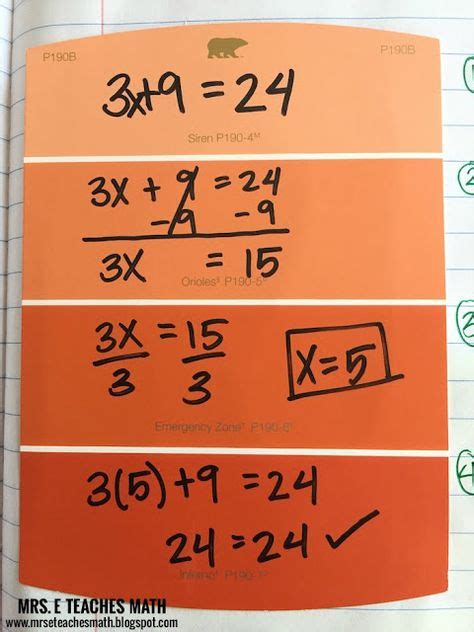 P190B P190B
3x+9 = 24
Siren P190-4ᴹ
3x + 9 = 24
-9 -9
3x = 15
Orioles P190-5
3x = 15
3 3
x=5
Emergency Zone P190-6
3(5)+9 = 24
24 = 24 ✓
Inferno P190-7
MRS. E TEACHES MATH
www.mrseteachesmath.blogspot.com